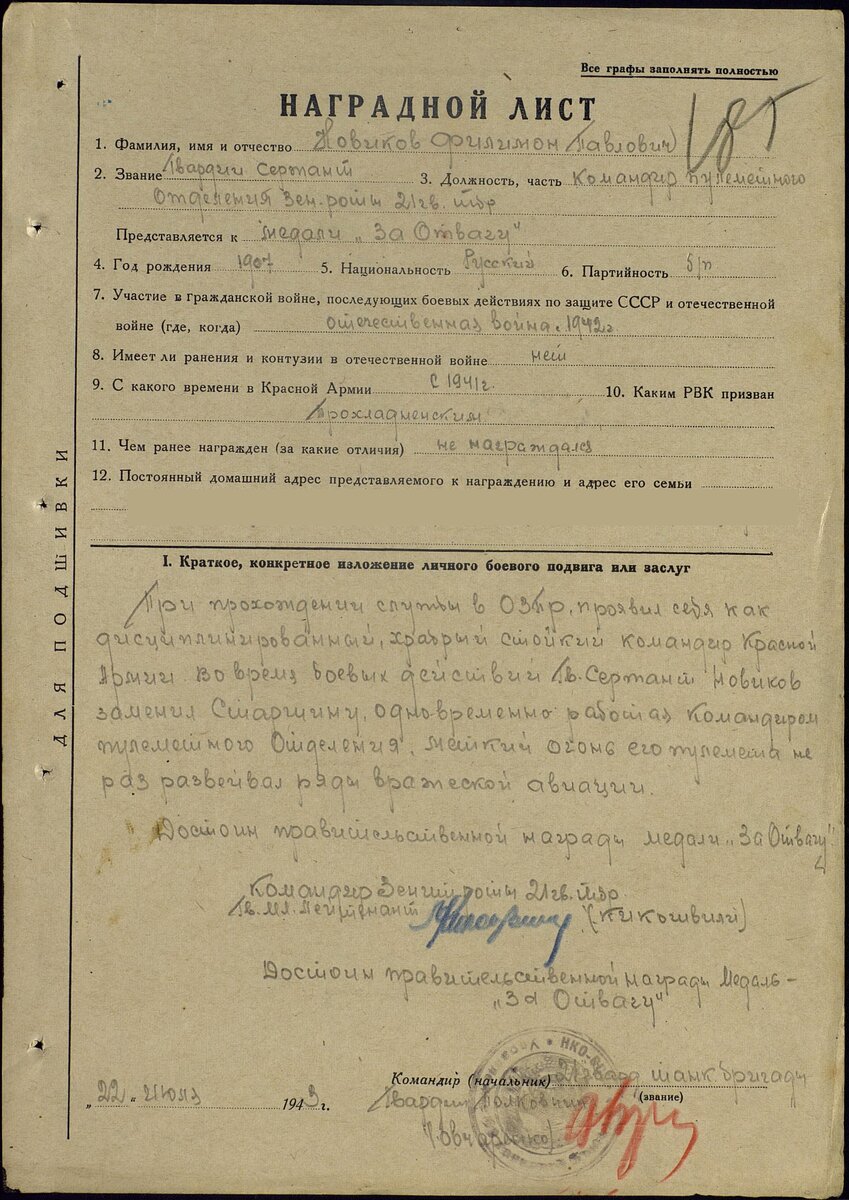 Все графы заполнять полностью
НАГРАДНОЙ ЛИСТ
1. Фамилия, имя и отчество Новиков Филимон Павлович
2. Звание Гвардии Сержант 3. Должность, часть Командир пулеметного
Отделения Зен. роты 21 гв. тбр
Представляется к медали „За Отвагу"
4. Год рождения 1907 5. Национальность Русский 6. Партийность б/п
7. Участие в гражданской войне, последующих боевых действиях по защите СССР и отечественной
войне (где, когда) отечественная война с 1942 г.
8. Имеет ли ранения и контузии в отечественной войне нет
9. С какого времени в Красной Армии С 1941 г. 10. Каким РВК призван
Прохладненским
11. Чем ранее награжден (за какие отличия) не награждался
12. Постоянный домашний адрес представляемого к награждению и адрес его семьи
ДЛЯ ПОДШИВКИ
I. Краткое, конкретное изложение личного боевого подвига или заслуг
При прохождении службы в ОЗПР, проявил себя как
дисциплинированный, храбрый стойкий командир Красной
Армии. Во время боевых действий Гв. Сержант Новиков
заменил Старшину, одновременно работая Командиром
пулеметного Отделения, меткий огонь его пулемета не
раз развеивал ряды вражеской авиации.
Достоин правительственной награды медали „За Отвагу"
Командир Зенит роты 21 гв. тбр.
Гв. Мл. Лейтенант (Кикошвили)
Достоин правительственной награды Медаль –
„За Отвагу"
Командир (начальник) 21 гвард танк. бригады
(звание)
„22" Июля 1943 г. Гвардии Полковник
(Овчаренко)
НКО